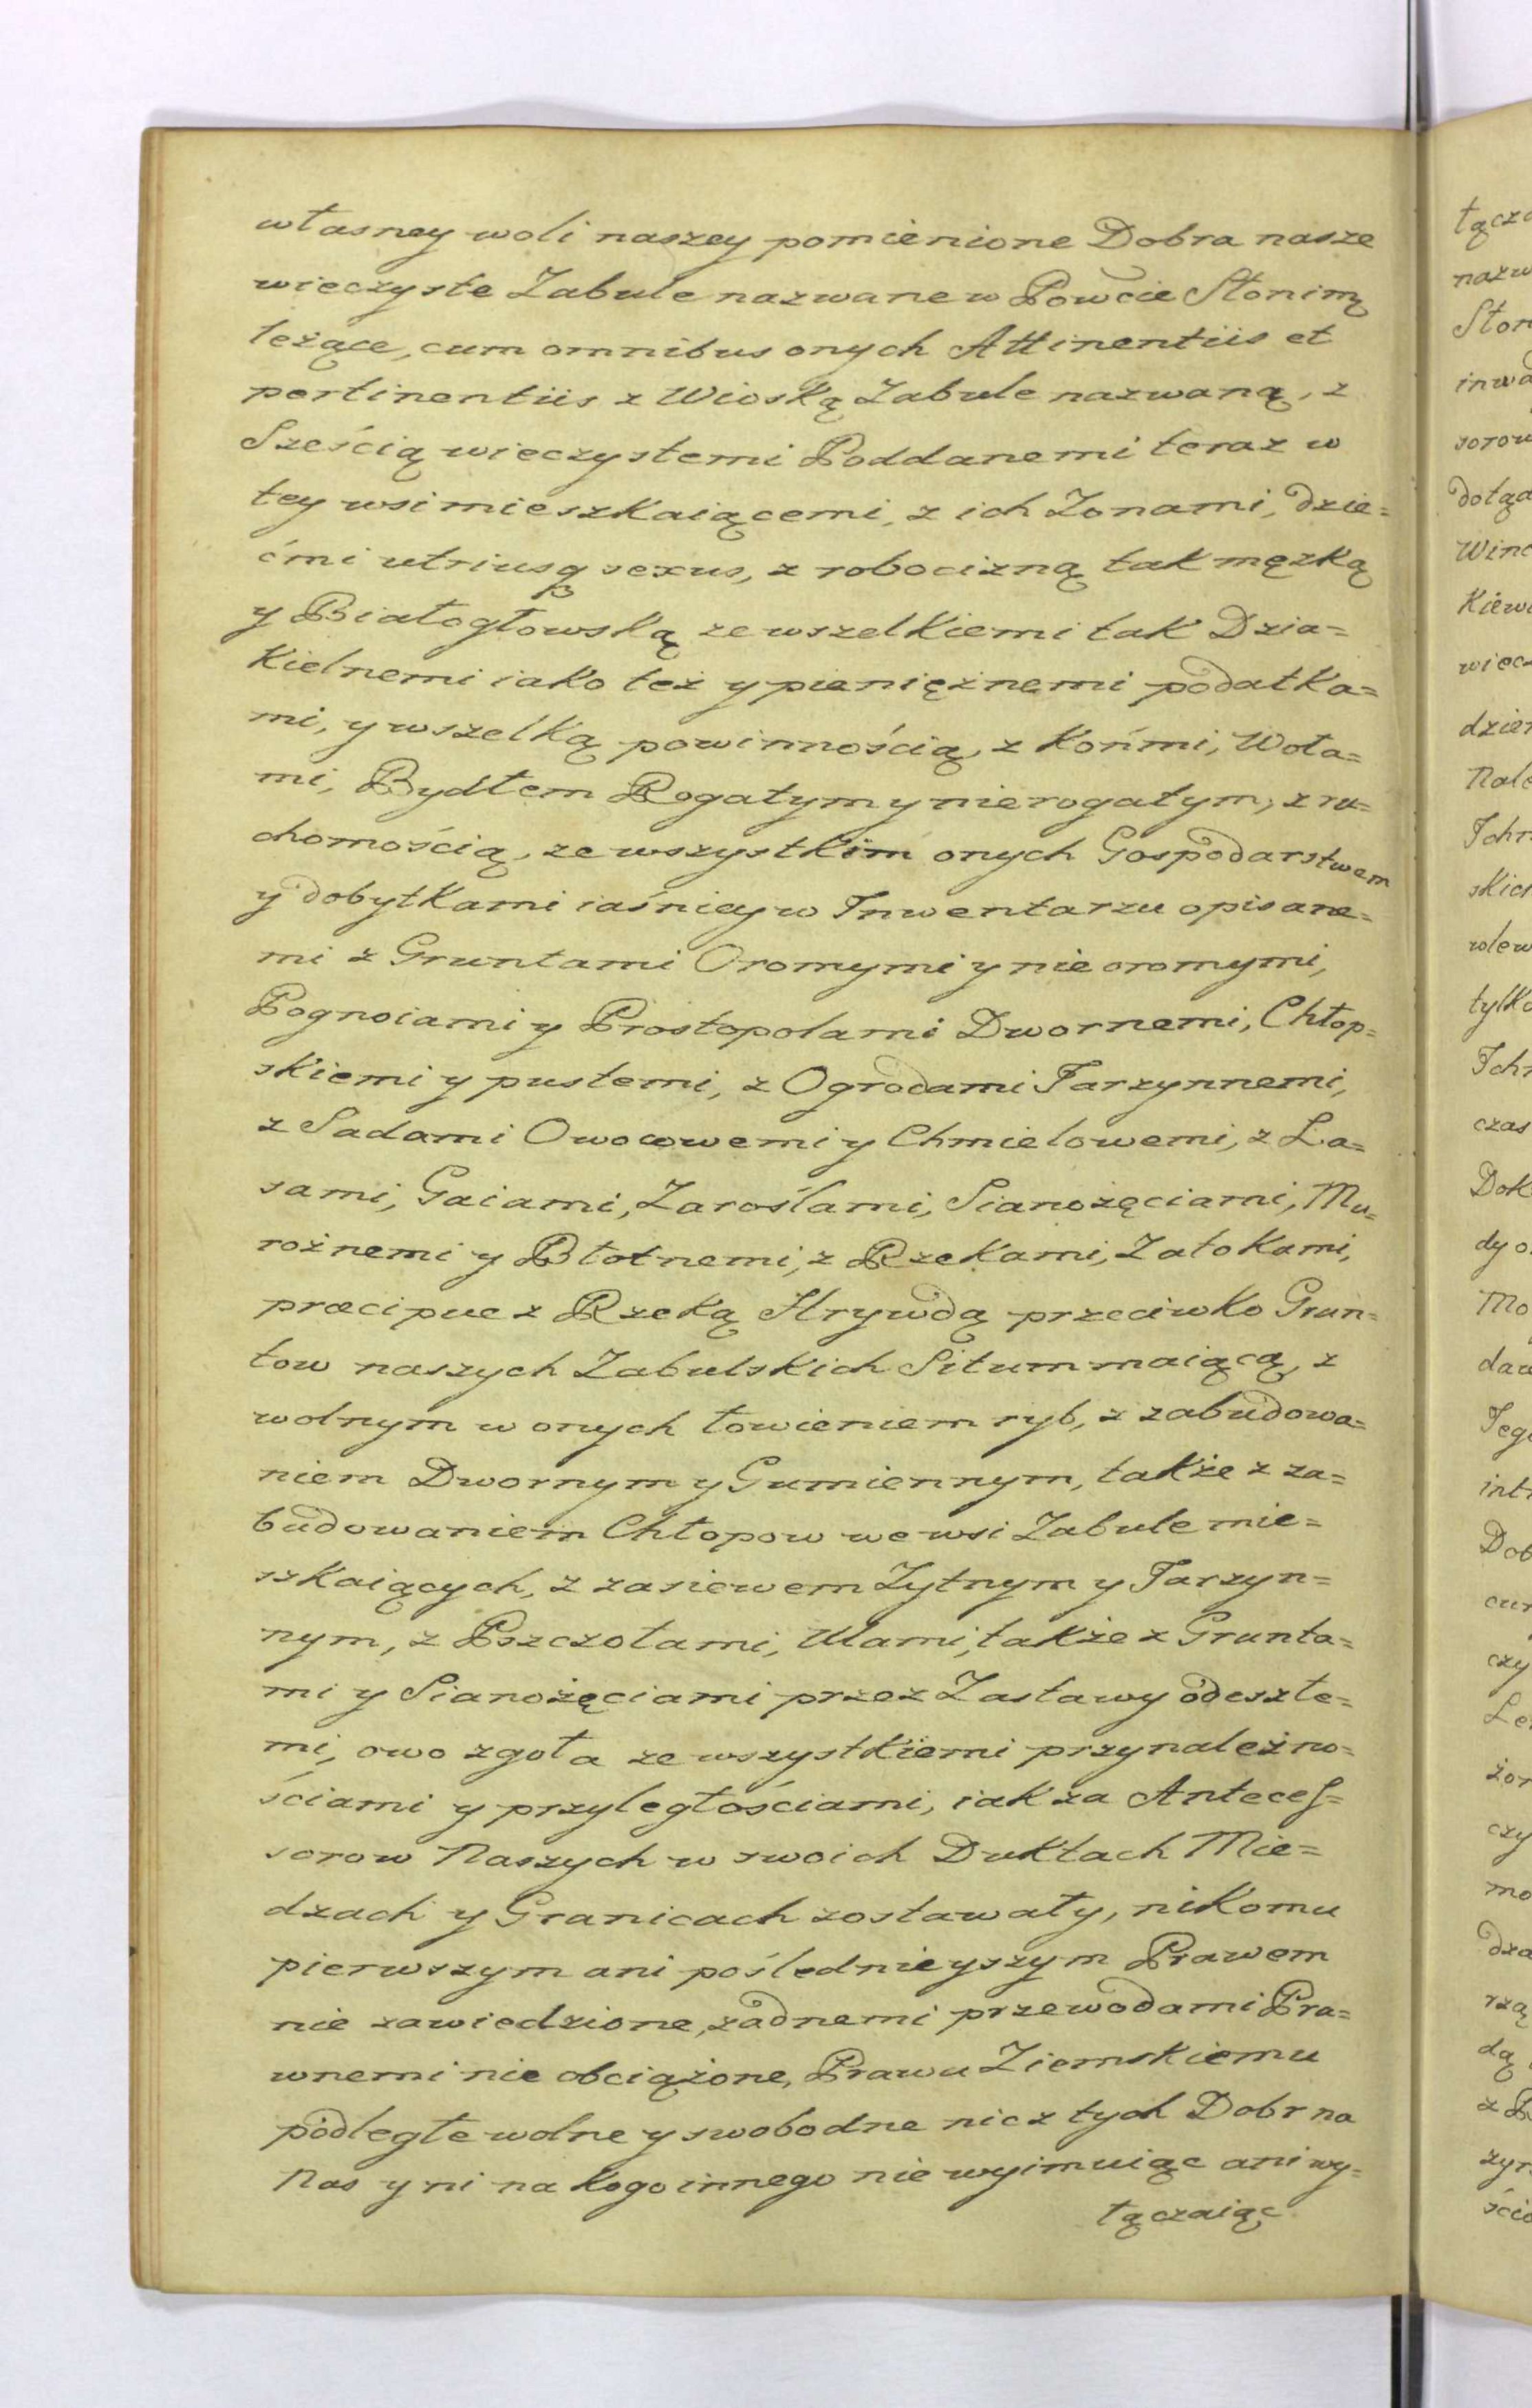 własney woli naszey pomienione Dobra nasze
wieczyste Zabule nazwane w Powcie Słonimą
leżące, cum omnibus onych Attinentiis et
pertinentiis z Wioską Zabule nazwaną, z
Sześcią wieczystemi Poddanemi teraz w
tey wsi mieszkaiącemi, z ich Zonami, dzie=
ćmi utriusq sexus, z robocizną tak męzką
y Białogłowską ze wszelkiemi tak Dzia=
kielnemi iako też y pieniężnemi podatka=
mi, y wszelką powinnością, z Końmi, Woła=
mi, Bydłem Rogatym y nierogatym, z ru=
chomością, ze wszystkim onych Gospodarstwem
y dobytkami iaśniey w Inwentarzu opisane=
mi z Gruntami Oromymi y nie oromymi,
Pognoiami y Prostopolami Dwornemi, Chłop=
skiemi y pustemi, z Ogrodami Jarzynnemi,
z Sadami Owocowemi y Chmielowemi, z La=
sami, Gaiami, Zaroślami, Sianożęciami, Mu=
rożnemi y Błotnemi, z Rzekami, Zatokami,
præcipue z Rzeką Hrywdą przeciwko Grun=
tow naszych Zabulskich Situm maiącą, z
wolnym w onych łowieniem ryb, z zabudowa=
niem Dwornym y Gumiennym, także z za=
budowaniem Chłopow we wsi Zabule mie=
szkaiących, z zasiewem Żytnym y Jarzyn=
nym, z Pszczołami, Ulami, także z Grunta=
mi y Sianożęciami przez Zastawy odeszłe=
mi, owo zgoła ze wszystkiemi przynależno=
ściami y przyległościami, iak za Anteces=
sorow Naszych w swoich Duktach Mie=
dzach y Granicach zostawały, nikomu
pierwszym ani poślednieyszym Prawem
nie zawiedzione, żadnemi przewodami Pra=
wnemi nie obciążone, Prawu Ziemskiemu
podległe wolne y swobodne nic z tych Dobr na
Nas y ni na kogo innego nie wyimuiąc ani wy=
łączaiąc